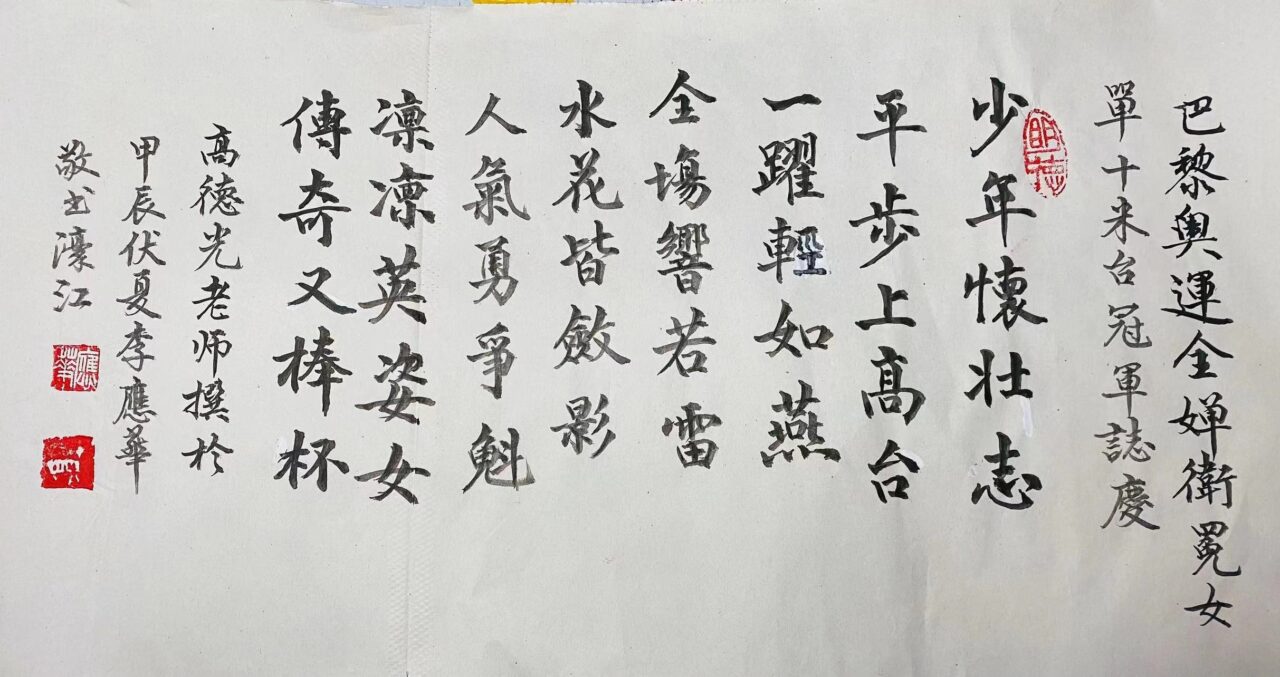 巴黎奧運全嬋衛冕女
單十米台冠軍誌慶
明志
少年懷壯志
平步上髙台
一躍輕如燕
全塲響若雷
水花皆斂影
人氣勇爭魁
凛凛英姿女
傳奇又棒杯
髙德光老师撰於
甲辰伏夏李應華
敬书濠江
應華